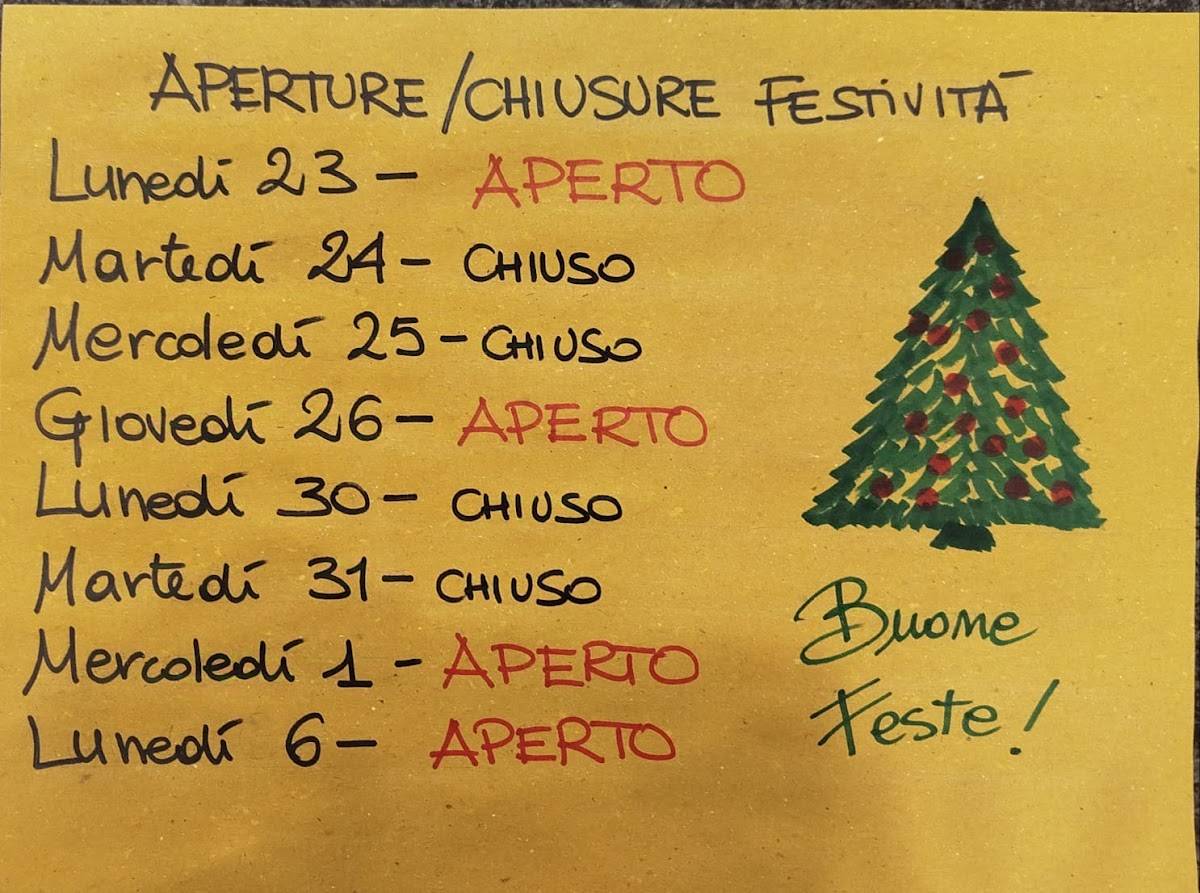 APERTURE/CHIUSURE FESTIVITÀ
Lunedí 23 - APERTO
Martedí 24 - CHIUSO
Mercoledí 25 - CHIUSO
Giovedí 26 - APERTO
Lunedí 30 - CHIUSO
Martedí 31 - CHIUSO
Mercoledí 1 - APERTO
Lunedí 6 - APERTO
Buone
Feste!